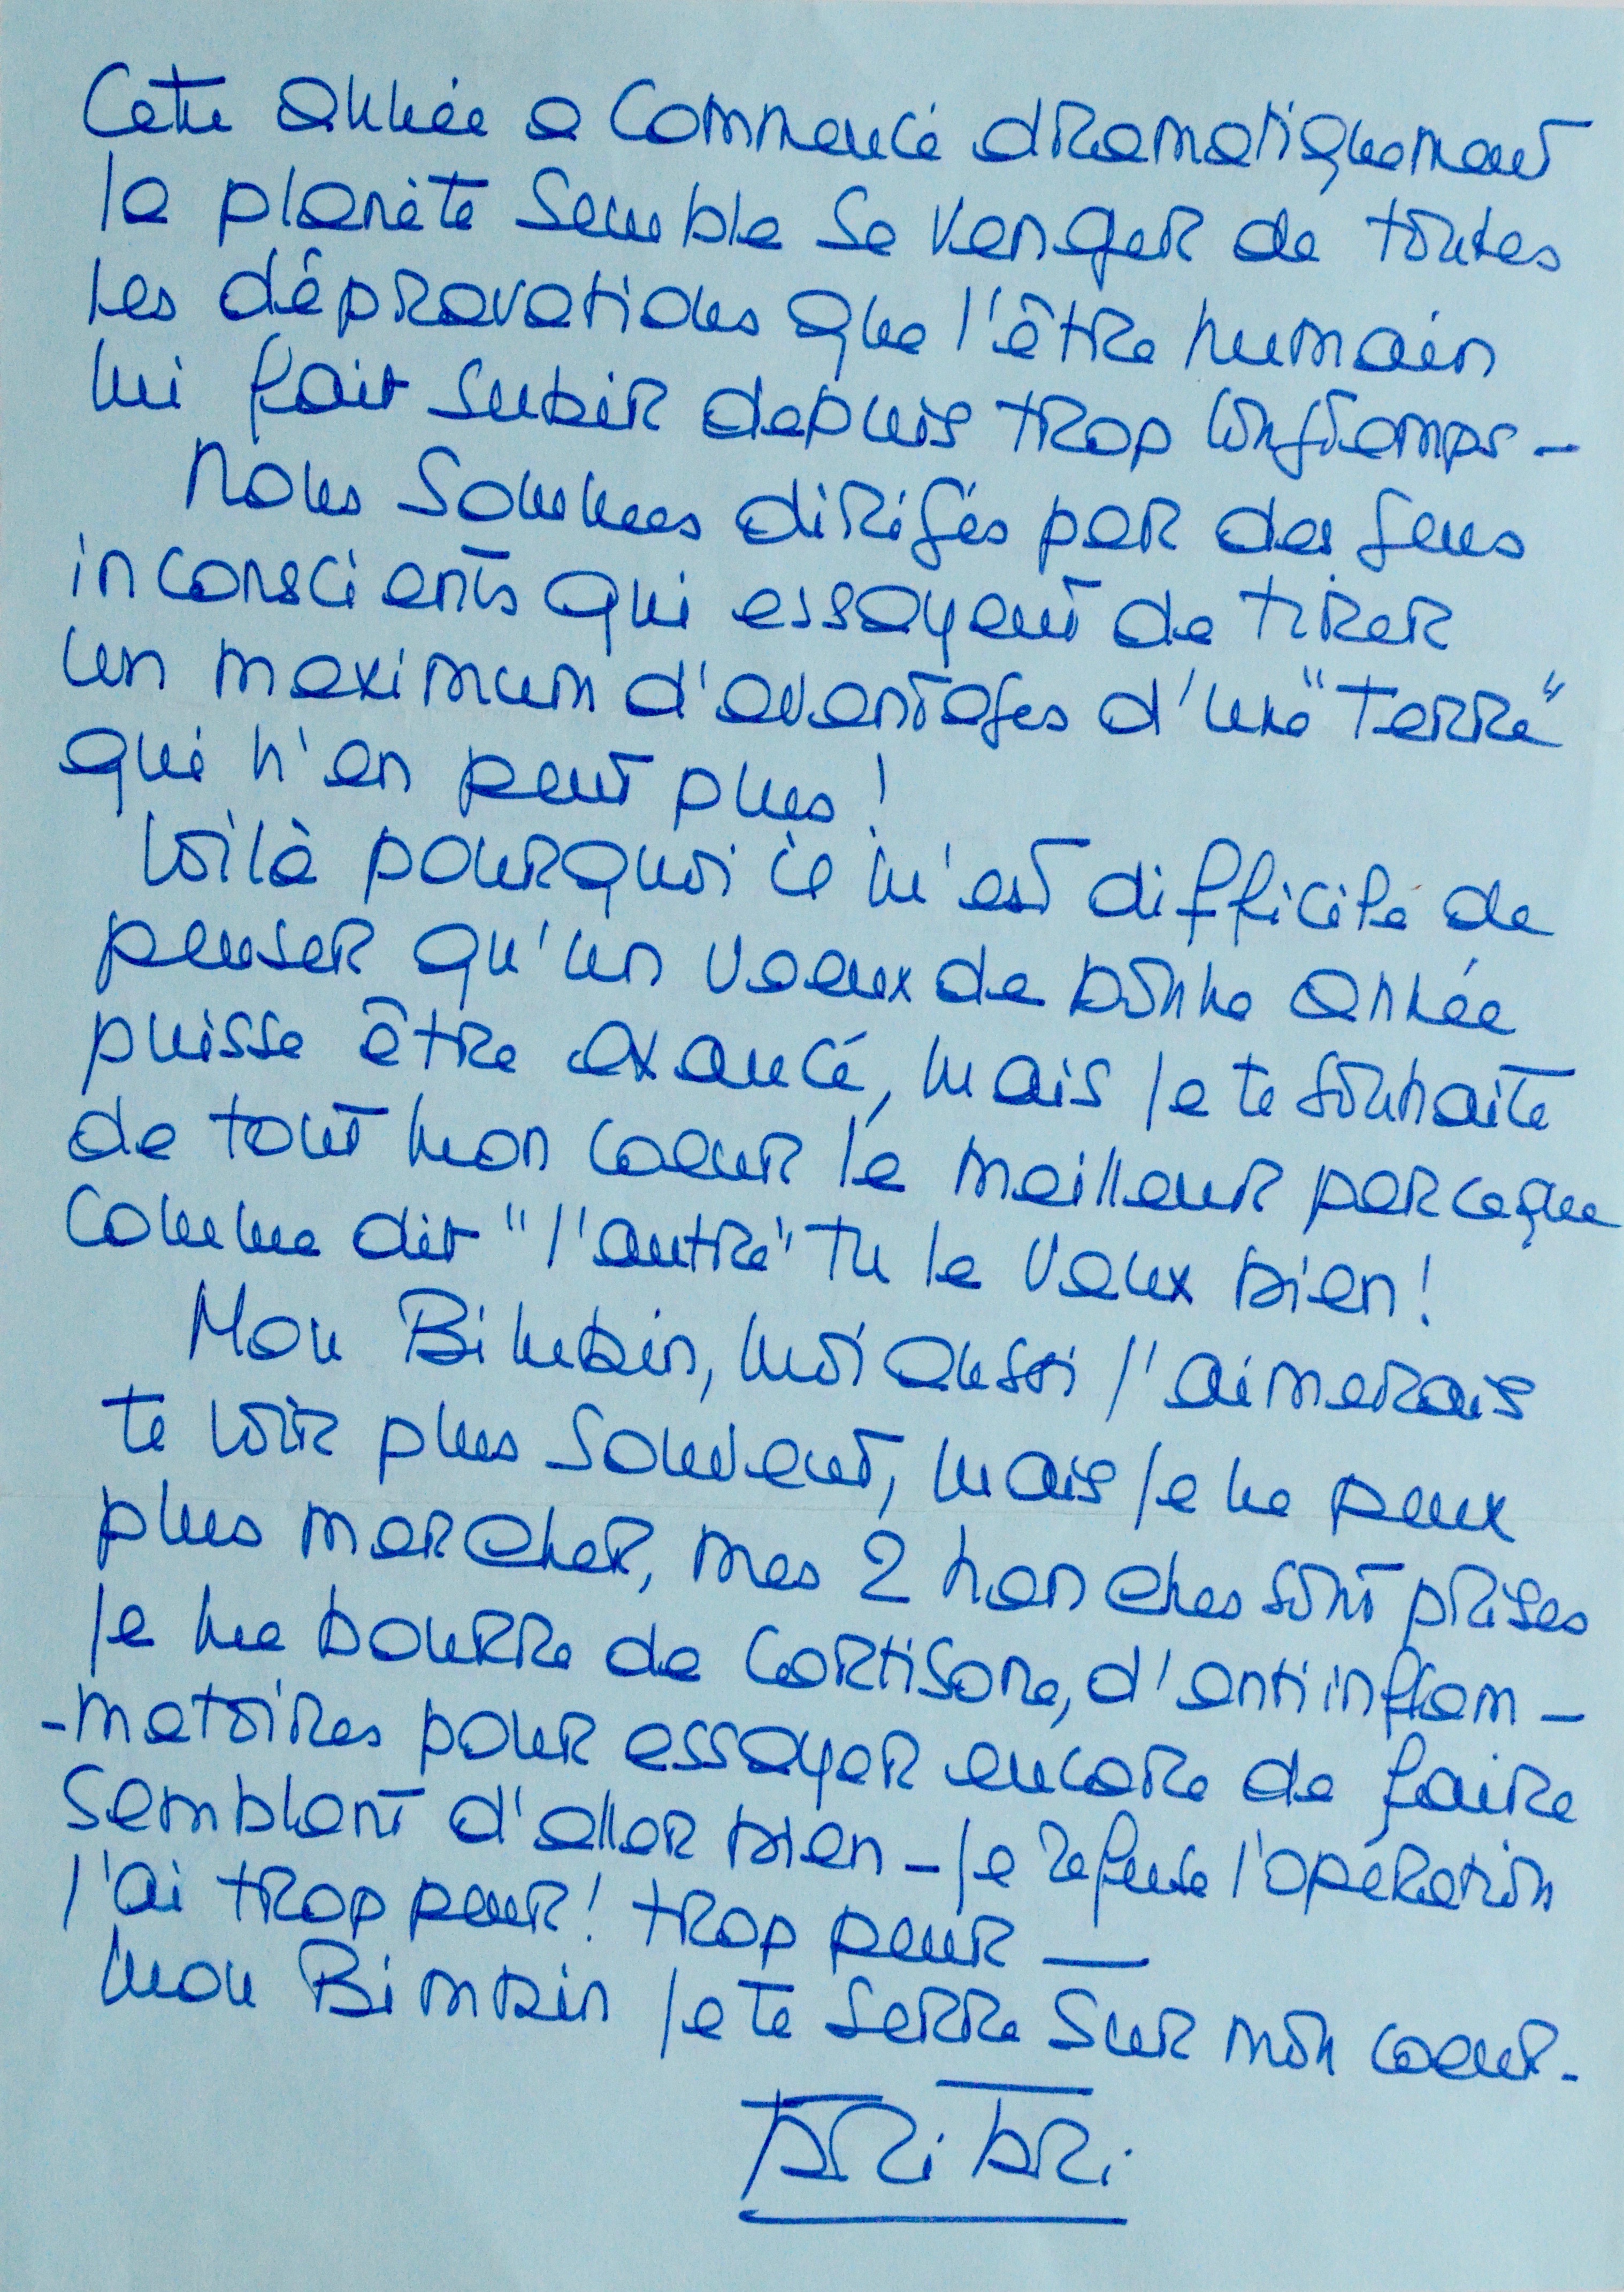 Cette année a commencé dramatiquement
la planète semble se venger de toutes
les dépravations que l'être humain
lui fait subir depuis trop longtemps -
Nous sommes dirigés par des gens
inconscients qui essayent de tirer
un maximum d'avantages d'une "Terre"
qui n'en peut plus !
Voilà pourquoi il m'est difficile de
penser qu'un voeux de bonne année
puisse être exaucé, mais je te souhaite
de tout mon coeur le meilleur parceque
comme dit "l'autre" tu le vaux bien !
Mon Bimbin, moi aussi j'aimerais
te voir plus souvent, mais je ne peux
plus marcher, mes 2 hanches sont prises
je me bourre de cortisone, d'antiinflam -
-matoires pour essayer encore de faire
semblant d'aller bien - je refuse l'opération
j'ai trop peur ! trop peur —
mon Bimbin je te serre sur mon coeur -
BRi BRi.